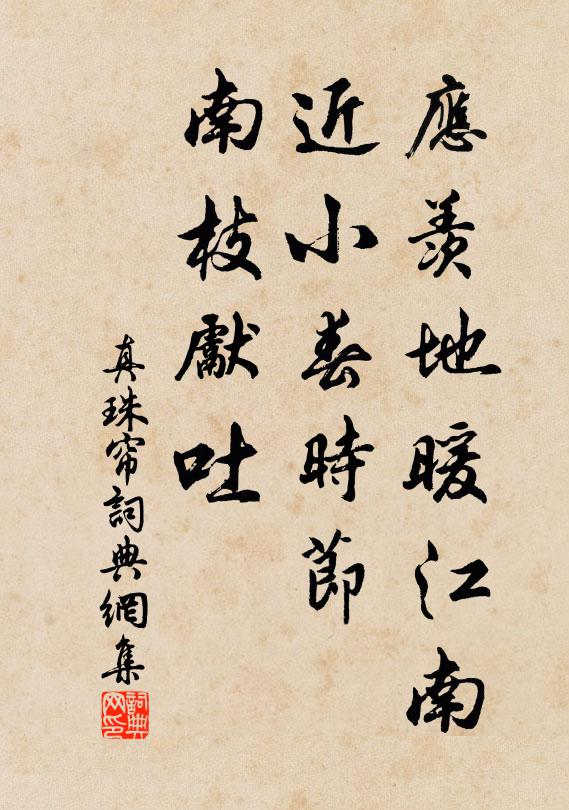 應羨地暖江南
近小春時節
南枝獻吐
真珠帘詞典網集
詞典网印